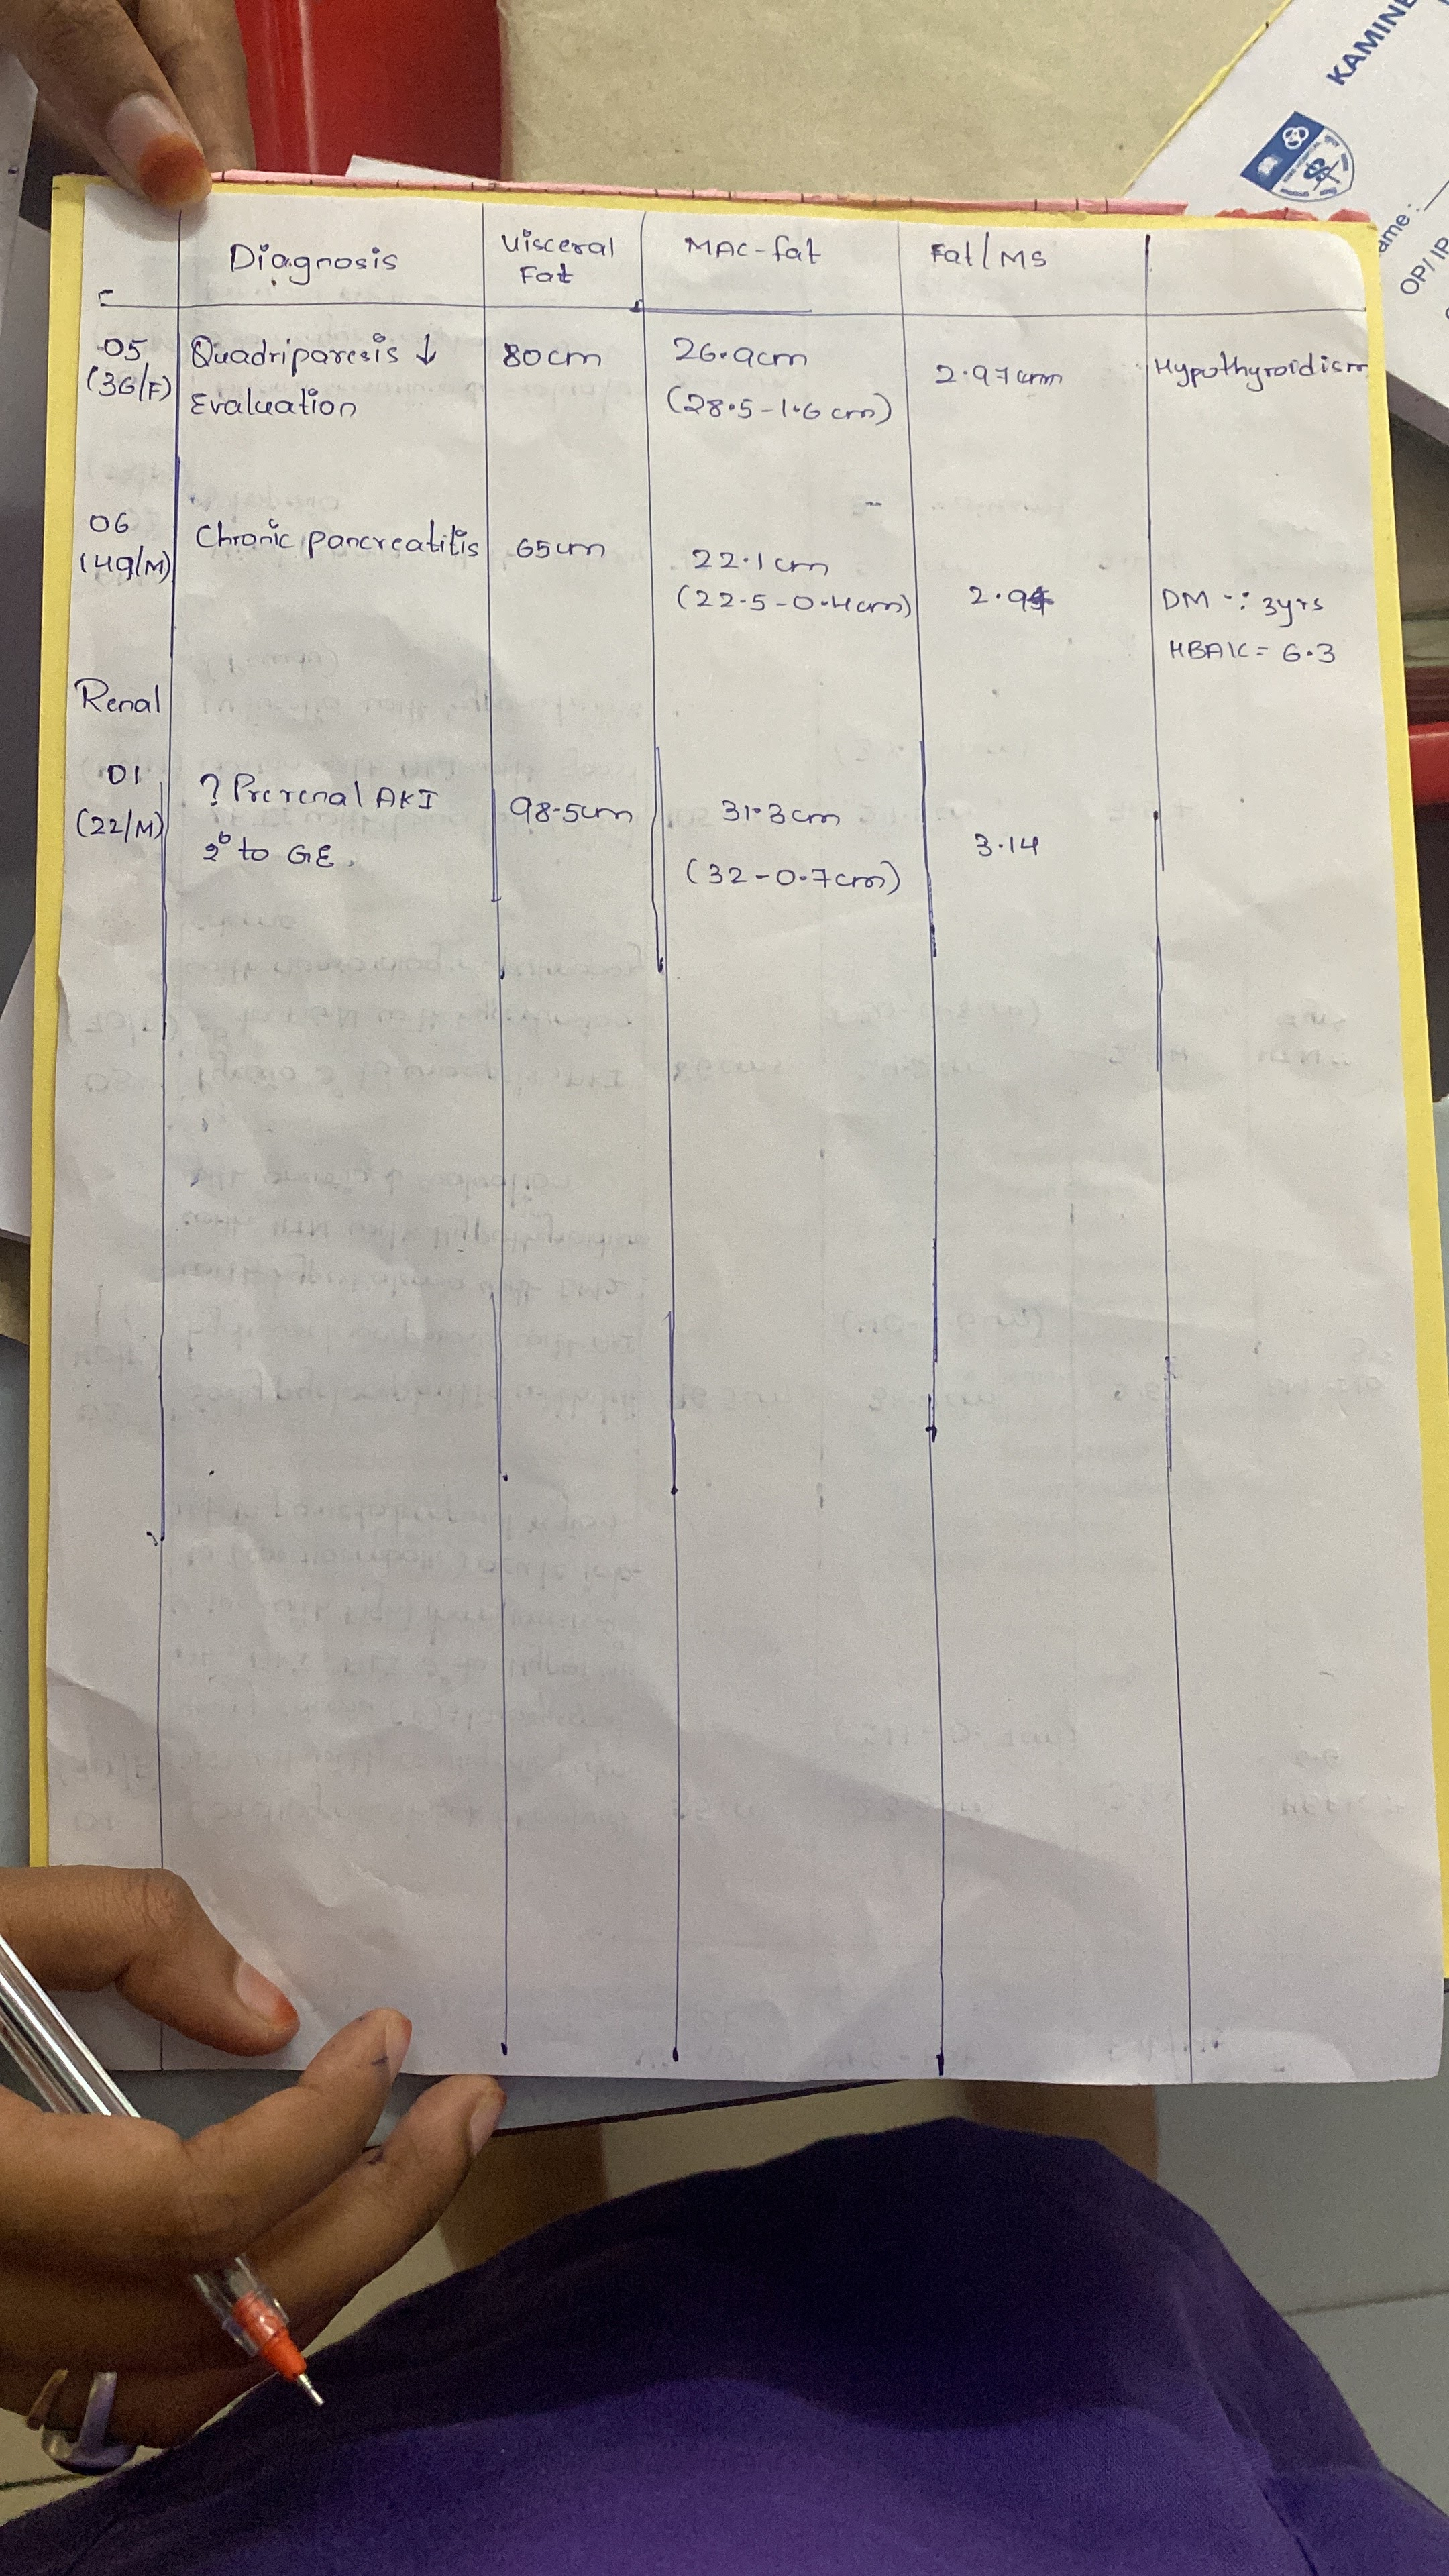 KAMINE
ame :
OP/ IP
Diagnosis
Visceral
Fat
MAC-fat
Fat/MS
05
(36/F)
Quadriparesis ↓
Evaluation
80cm
26.9cm
(28.5-1.6cm)
2.97cm
Hypothyroidism
06
(49/M)
Chronic pancreatitis
65cm
22.1cm
(22.5-0.4cm)
2.94
DM -: 3yrs
HBA1C = 6.3
Renal
01
(22/M)
? Prerenal AKI
2° to GE.
98.5cm
31.3cm
(32-0.7cm)
3.14